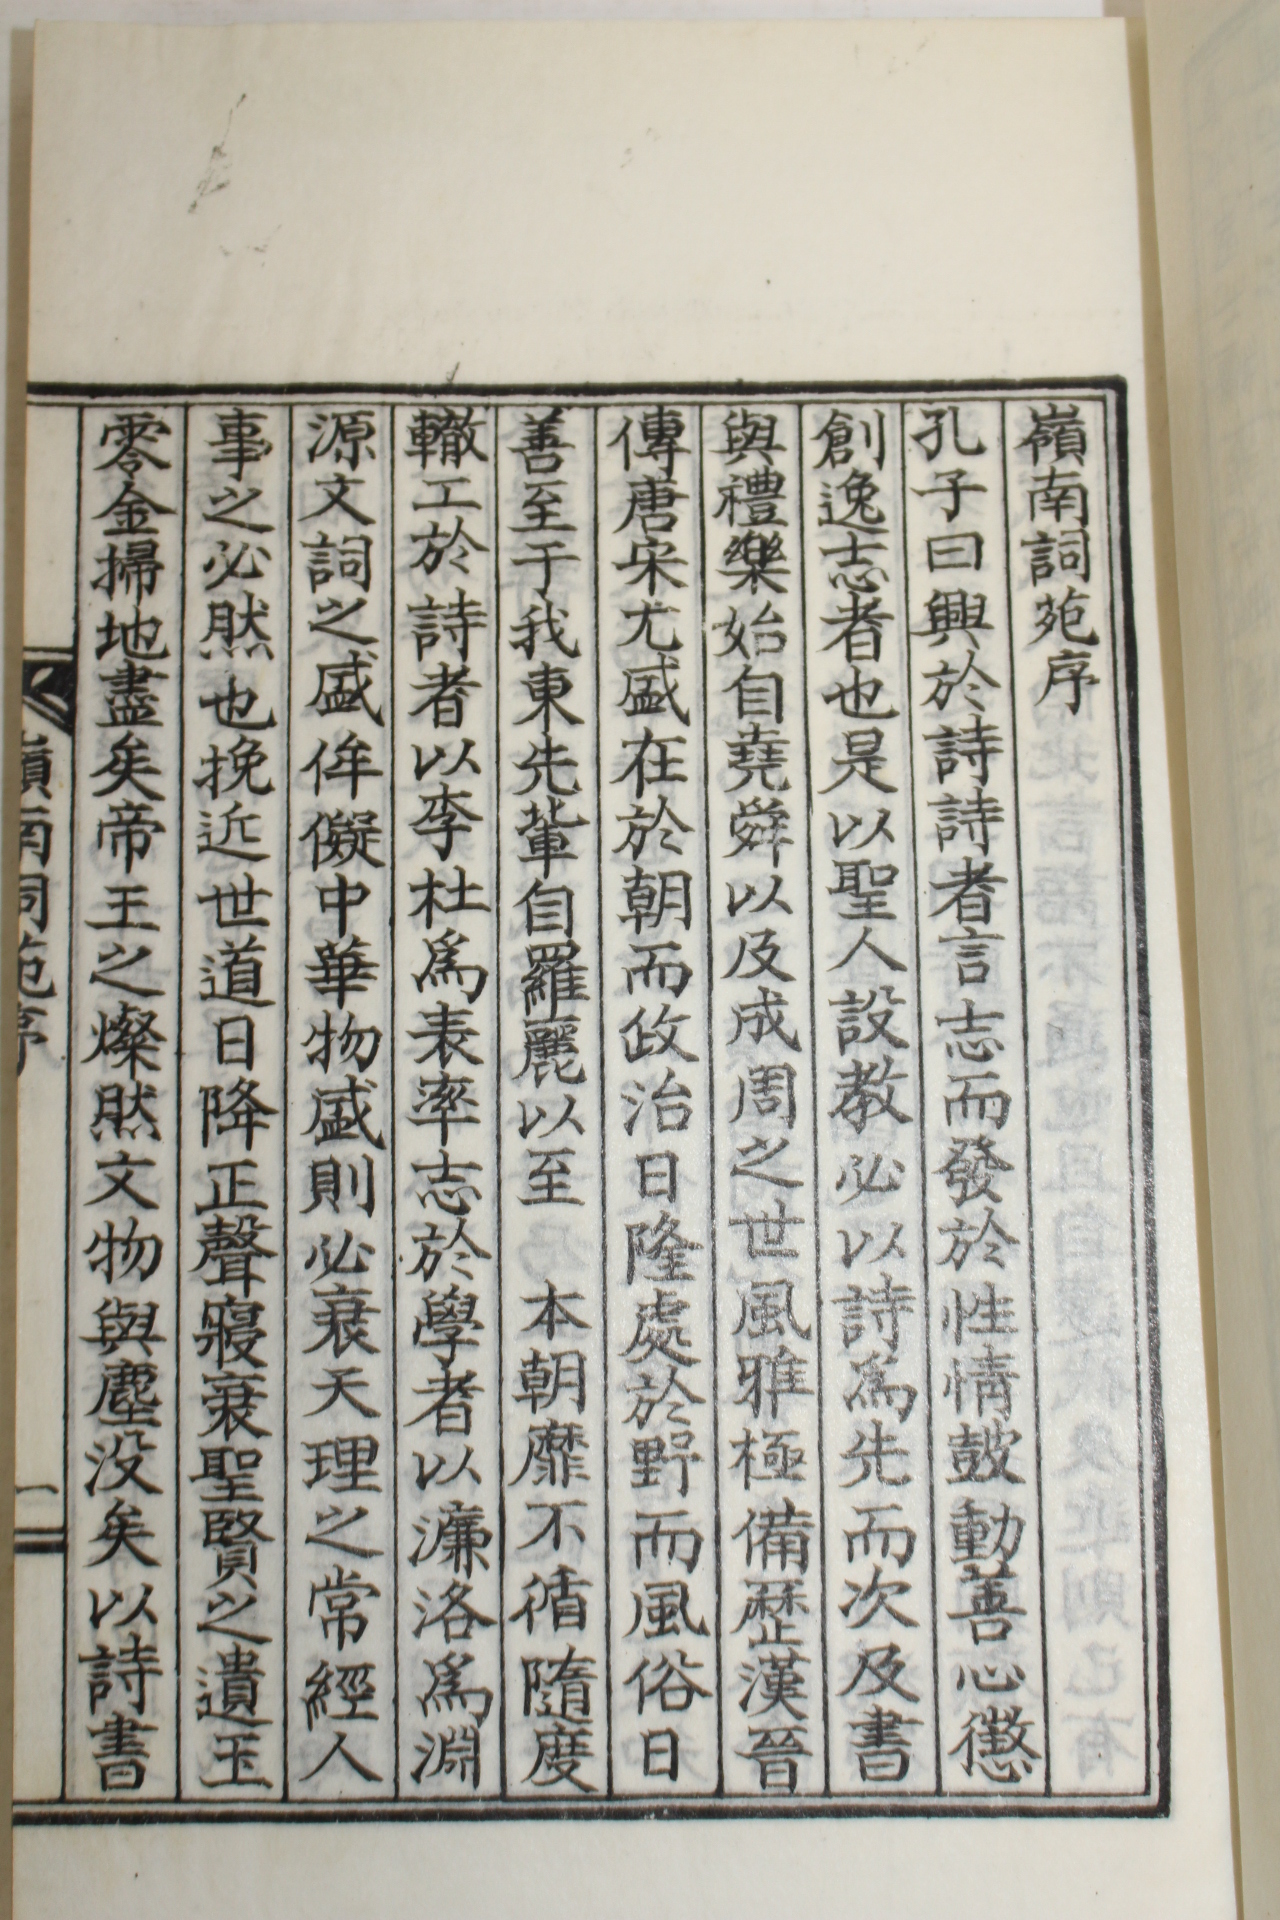 嶺南詞苑序
孔子曰興於詩詩者言志而發於性情鼓動善心懲
創逸志者也是以聖人設教必以詩爲先而次及書
與禮樂始自堯舜以及成周之世風雅極備歷漢晉
傳唐宋尤盛在於朝而政治日隆處於野而風俗日
善至于我東先輩自羅麗以至 本朝靡不循隨度
轍工於詩者以李杜爲表率志於學者以濂洛爲淵
源文詞之盛侔儗中華物盛則必衰天理之常經人
事之必然也挽近世道日降正聲寢衰聖賢之遺玉
零金掃地盡矣帝王之燦然文物與塵沒矣以詩書
嶺南詞苑序
一